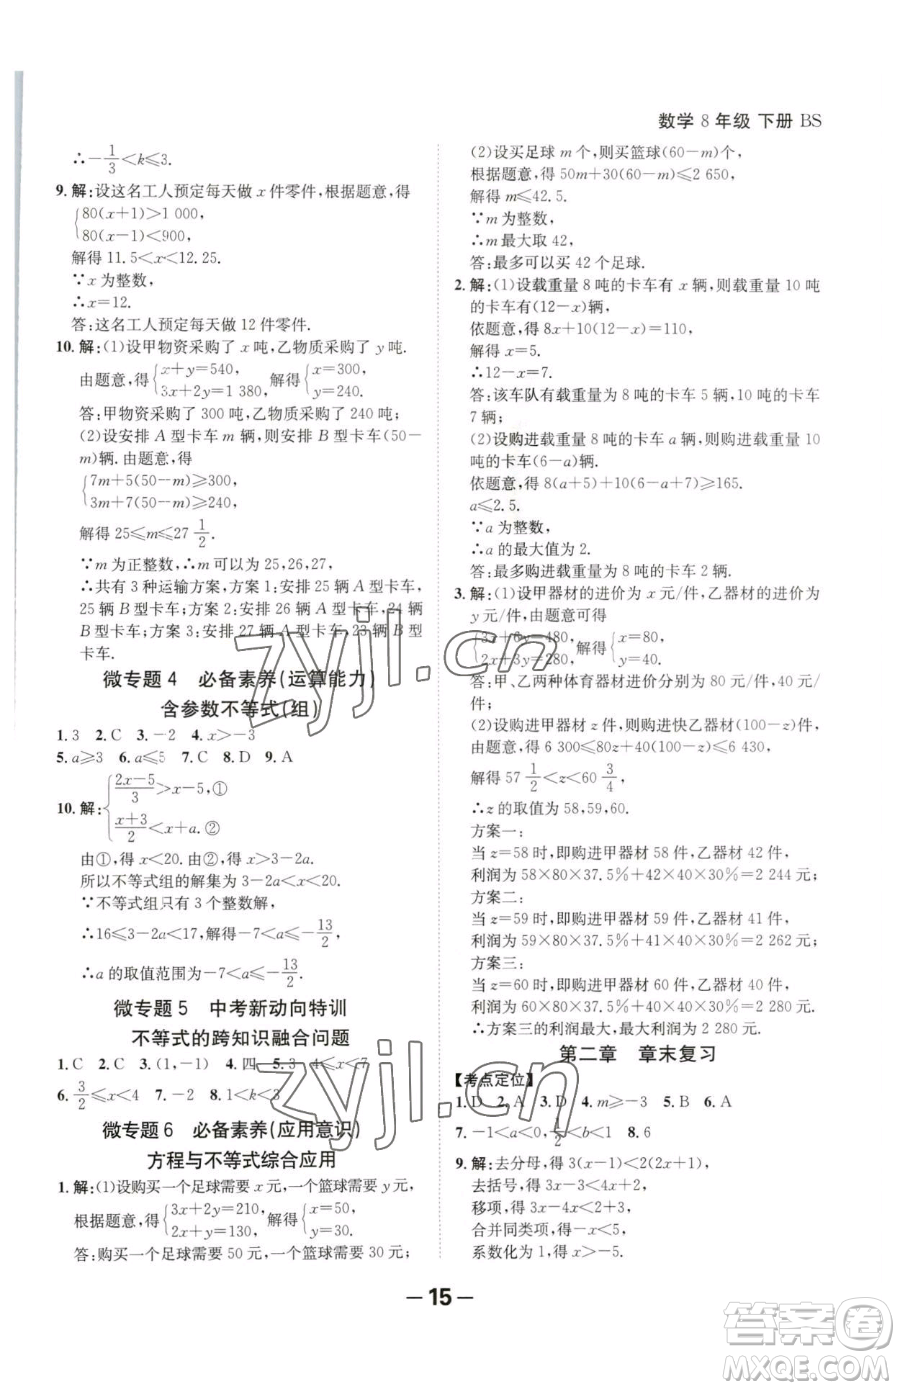 数学 8 年级 下册 BS
∴-1/3<k≤3.
9. 解:设这名工人预定每天做 x 件零件,根据题意,得
{80(x+1)>1 000,
80(x-1)<900,
解得 11.5<x<12.25.
∵x 为整数,
∴x=12.
答:这名工人预定每天做 12 件零件.
10. 解:(1)设甲物资采购了 x 吨,乙物质采购了 y 吨.
由题意,得{x+y=540, 3x+2y=1 380, 解得{x=300, y=240.
答:甲物资采购了 300 吨,乙物质采购了 240 吨;
(2)设安排 A 型卡车 m 辆,则安排 B 型卡车(50-
m)辆. 由题意,得
{7m+5(50-m)≥300,
3m+7(50-m)≥240,
解得 25≤m≤27 1/2.
∵m 为正整数,∴m 可以为 25,26,27,
∴共有 3 种运输方案,方案 1:安排 25 辆 A 型卡车,
25 辆 B 型卡车;方案 2:安排 26 辆 A 型卡车,24 辆
B 型卡车;方案 3:安排 27 辆 A 型卡车,23 辆 B 型
卡车.
微专题 4 必备素养(运算能力)
含参数不等式(组)
1. 3 2. C 3. -2 4. x>-3
5. a≥3 6. a≤5 7. C 8. D 9. A
10. 解:{(2x-5)/3>x-5,①
(x+3)/2<x+a.②
由①,得 x<20. 由②,得 x>3-2a.
所以不等式组的解集为 3-2a<x<20.
∵不等式组只有 3 个整数解,
∴16≤3-2a<17,解得-7<a≤-13/2,
∴a 的取值范围为-7<a≤-13/2.
微专题 5 中考新动向特训
不等式的跨知识融合问题
1. C 2. C 3. (1,-1) 4. 四 5. 3 4≤x≤7
6. 3/2≤x<4 7. -2 8. 1<k<3
微专题 6 必备素养(应用意识)
方程与不等式综合应用
1. 解:(1)设购买一个足球需要 x 元,一个篮球需要 y 元,
根据题意,得{3x+2y=210, 2x+y=130, 解得{x=50, y=30.
答:购买一个足球需要 50 元,一个篮球需要 30 元;
(2)设买足球 m 个,则买篮球(60-m)个,
根据题意,得 50m+30(60-m)≤2 650,
解得 m≤42.5.
∵m 为整数,
∴m 最大取 42,
答:最多可以买 42 个足球.
2. 解:(1)设载重量 8 吨的卡车有 x 辆,则载重量 10 吨
的卡车有(12-x)辆,
依题意,得 8x+10(12-x)=110,
解得 x=5.
∴12-x=7.
答:该车队有载重量为 8 吨的卡车 5 辆,10 吨的卡车
7 辆;
(2)设购进载重量 8 吨的卡车 a 辆,购进载重量 10
吨的卡车(6-a)辆.
依题意,得 8(a+5)+10(6-a+7)≥165.
a≤2.5,
∵a 为整数,
∴a 的最大值为 2.
答:最多购进载重量为 8 吨的卡车 2 辆.
3. 解:(1)设甲器材的进价为 x 元/件,乙器材的进价为
y 元/件,由题意可得
{3x+6y=480, 2x+3y=280, 解得{x=80, y=40.
答:甲、乙两种体育器材进价分别为 80 元/件,40 元/
件;
(2)设购进甲器材 z 件,则购进快乙器材(100-z)件,
由题意得 6 300≤80z+40(100-z)≤6 430,
解得 57 1/2<z<60 3/4,
∴z 的取值为 58,59,60.
方案一:
当 z=58 时,即购进甲器材 58 件,乙器材 42 件,
利润为 58×80×37.5%+42×40×30%=2 244 元;
方案二:
当 z=59 时,即购进甲器材 59 件,乙器材 41 件,
利润为 59×80×37.5%+41×40×30%=2 262 元;
方案三:
当 z=60 时,即购进甲器材 60 件,乙器材 40 件,
利润为 60×80×37.5%+40×40×30%=2 280 元,
∴方案三的利润最大,最大利润为 2 280 元.
第二章 章末复习
【考点定位】
1. D 2. A 3. D 4. m≥-3 5. B 6. A
7. -1<a<0,1/2<b<1 8. 6
9. 解:去分母,得 3(x-1)<4x-2,
去括号,得 3x-3<4x-2,
移项,得 3x-4x<2+3
合并同类项,得-x<1
系数化为 1,得 x>-1.
-15-
zyjl.cn
zyjl.cn
答案圈
MXQE.COM